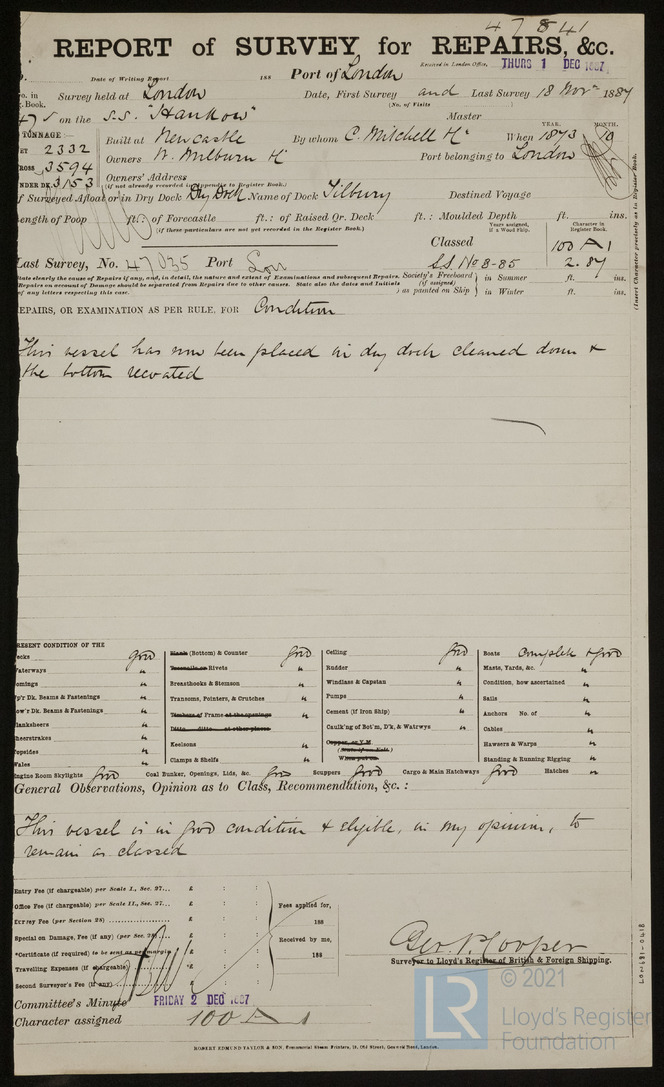 47841
REPORT of SURVEY for REPAIRS, &c.
Date of Writing Report 188 Port of London Received in London Office, THURS 1 DEC 1887
No. in Survey held at London Date, First Survey and Last Survey 18 Novr 1887
g. Book. (No. of Visits
on the S.S. "Hankow" Master
TONNAGE YEAR. MONTH.
2332 Built at Newcastle By whom C. Mitchell When 1873 10
ROSS 3594 Owners W. Milburn Port belonging to London
NDER DK. 3153 Owners' Address
(if not already recorded in Appendix to Register Book.)
f Surveyed Afloat or in Dry Dock Dry Dock Name of Dock Tilbury Destined Voyage
ength of Poop ft.: of Forecastle ft.: of Raised Qr. Deck ft.: Moulded Depth ft. ins.
(if these particulars are not yet recorded in the Register Book.)
Years assigned, if a Wood Ship. Character in Register Book.
Classed 100 A 1
Last Survey, No. 47035 Port Lon SS No 8-85 2.87
State clearly the cause of Repairs if any, and, in detail, the nature and extent of Examinations and subsequent Repairs. Society's Freeboard in Summer ft. ins.
Repairs on account of Damage should be separated from Repairs due to other causes. State also the dates and Initials (if assigned)
of any letters respecting this case. as painted on Ship in Winter ft. ins.
(Insert Character precisely as in Register Book.
EPAIRS, OR EXAMINATION AS PER RULE, FOR Condition
This vessel has now been placed in dry dock cleaned down &
the bottom recoated
RESENT CONDITION OF THE
ecks good Plank (Bottom) & Counter good Ceiling good Boats complete & good
Waterways " Treenails or Rivets " Rudder " Masts, Yards, &c. "
omings " Breasthooks & Stemson " Windlass & Capstan " Condition, how ascertained "
Up'r Dk. Beams & Fastenings " Transoms, Pointers, & Crutches " Pumps " Sails "
ow'r Dk. Beams & Fastenings " Timbers of Frame at the openings " Cement (if Iron Ship) " Anchors No. of "
lanksheers " Ditto ditto at other places Caulk'g of Bot'm, D'k, & Watrwys " Cables "
heerstrakes " Keelsons " Copper, or Y.M. Hawsers & Warps "
opsides " (State if on Felt) Standing & Running Rigging "
Wales " Clamps & Shelfs " When put on
Engine Room Skylights good Coal Bunker, Openings, Lids, &c. good Scuppers good Cargo & Main Hatchways good Hatches "
General Observations, Opinion as to Class, Recommendation, &c.:
This vessel is in good condition & eligible, in my opinion, to
remain as classed
Entry Fee (if chargeable) per Scale I., Sec. 27... £ : :
Office Fee (if chargeable) per Scale II., Sec. 27... £ : : Fees applied for,
Survey Fee (per Section 28) £ : : 188
Special on Damage, Fee (if any) (per Sec. 28) £ : : Received by me,
*Certificate (if required) to be sent as per margin £ : : 188
Travelling Expenses (if chargeable) £ : :
Second Surveyor's Fee (if any) £ : :
Geo. P. Cooper
Surveyor to Lloyd's Register of British & Foreign Shipping.
Committee's Minute FRIDAY 2 DEC 1887
Character assigned 100 A 1
LON681-0418
ROBERT EDMUND TAYLOR & SON, Commercial Steam Printers, 19, Old Street, Goswell Road, London.
LR
© 2021
Lloyd's Register
Foundation